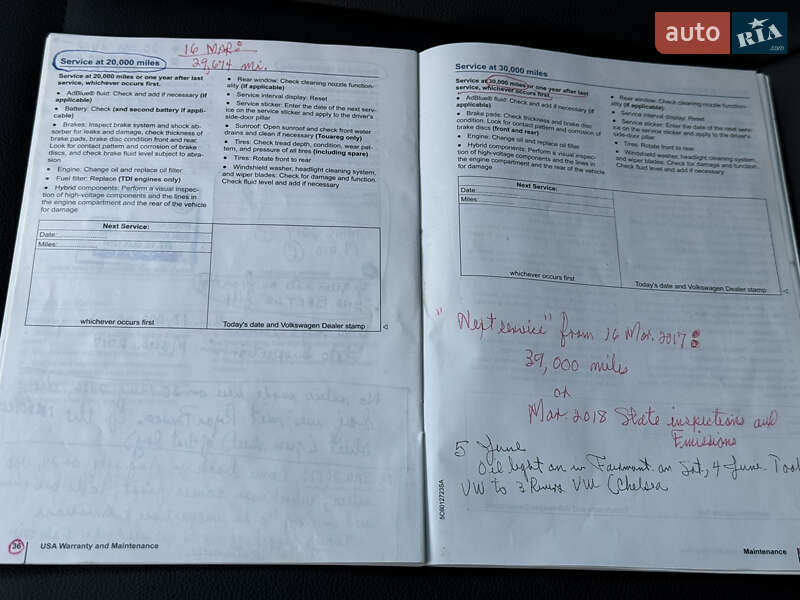 auto RIA .com
16 MAR:
29,674 mi.
Service at 20,000 miles
Service at 20,000 miles or one year after last
service, whichever occurs first.
• AdBlue® fluid: Check and add if necessary (if
applicable)
• Battery: Check (and second battery if appli-
cable)
• Brakes: Inspect brake system and shock ab-
sorber for leaks and damage, check thickness of
brake pads, brake disc condition front and rear.
Look for contact pattern and corrosion of brake
discs, and check brake fluid level subject to abra-
sion
• Engine: Change oil and replace oil filter
• Fuel filter: Replace (TDI engines only)
• Hybrid components: Perform a visual inspec-
tion of high-voltage components and the lines in
the engine compartment and the rear of the vehicle
for damage
• Rear window: Check cleaning nozzle function-
ality (if applicable)
• Service interval display: Reset
• Service sticker: Enter the date of the next serv-
ice on the service sticker and apply to the driver's
side-door pillar
• Sunroof: Open sunroof and check front water
drains and clean if necessary (Touareg only)
• Tires: Check tread depth, condition, wear pat-
tern, and pressure of all tires (including spare)
• Tires: Rotate front to rear
• Windshield washer, headlight cleaning system,
and wiper blades: Check for damage and function.
Check fluid level and add if necessary
Next Service:
Date:
Miles:
whichever occurs first
Today's date and Volkswagen Dealer stamp
36 USA Warranty and Maintenance
Service at 30,000 miles
Service at 30,000 miles or one year after last
service, whichever occurs first
• AdBlue® fluid: Check and add if necessary (if
applicable)
• Brake pads: Check thickness and brake disc
condition. Look for contact pattern and corrosion of
brake discs (front and rear)
• Engine: Change oil and replace oil filter
• Hybrid components: Perform a visual inspec-
tion of high-voltage components and the lines in
the engine compartment and the rear of the vehicle
for damage
• Rear window: Check cleaning nozzle function-
ality (if applicable)
• Service interval display: Reset
• Service sticker: Enter the date of the next serv-
ice on the service sticker and apply to the driver's
side-door pillar
• Tires: Rotate front to rear
• Windshield washer, headlight cleaning system,
and wiper blades: Check for damage and function.
Check fluid level and add if necessary
Next Service:
Date:
Miles:
whichever occurs first
Today's date and Volkswagen Dealer stamp
"Next service" from 16 Mar. 2017:
39,000 miles
or
Mar. 2018 State inspections and
Emissions
5 June
Oil light on in Fairmont on Sat, 4 June Took
VW to 3 Rivers VW (Chelsea
5C6012723SA
Maintenance